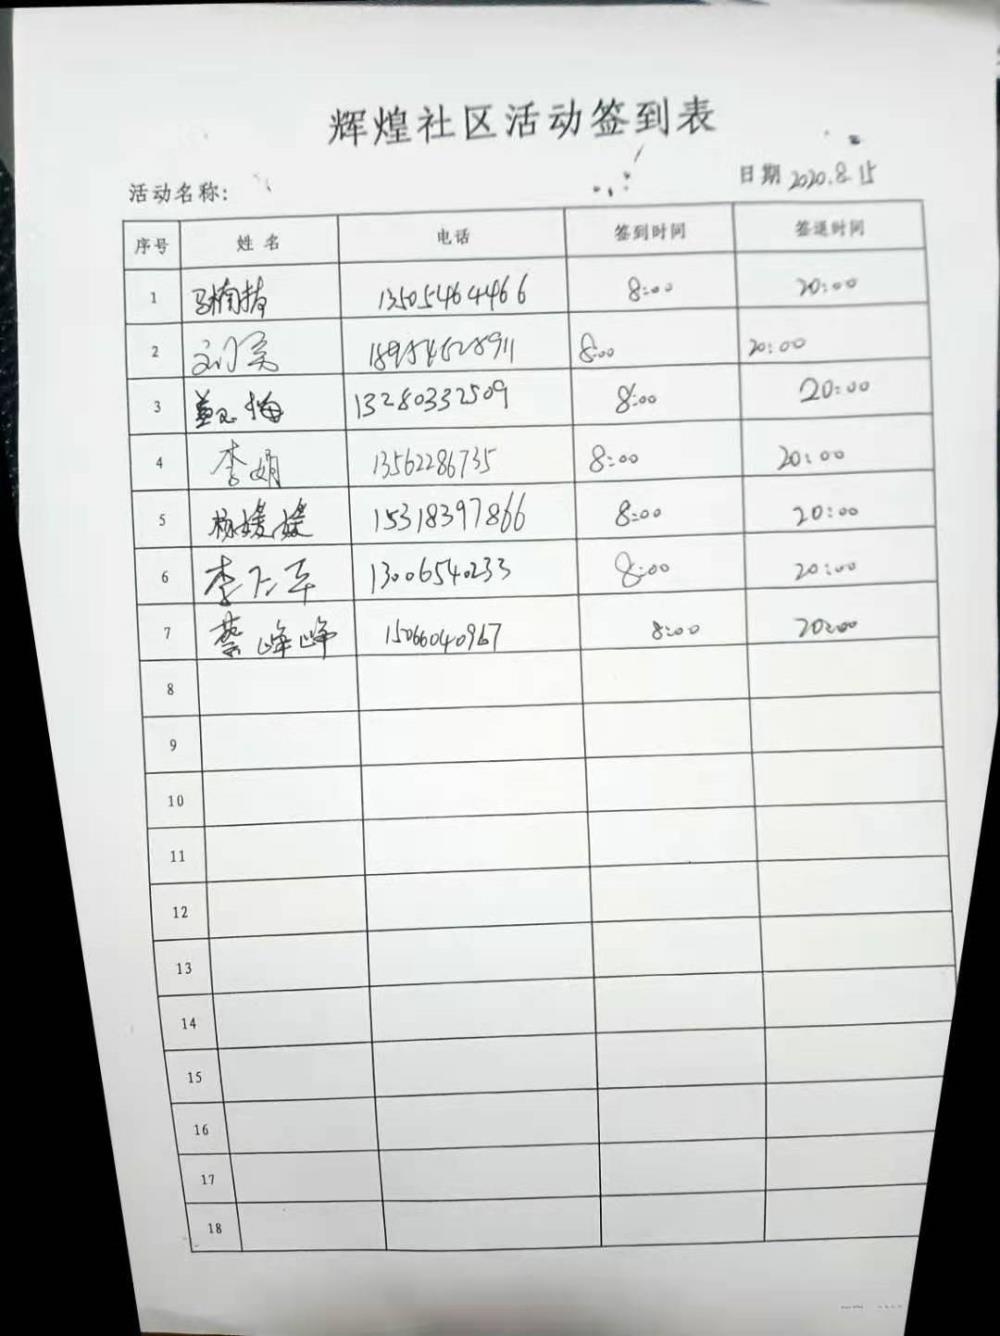 辉煌社区活动签到表
活动名称: 日期 2020.8.15
序号 姓名 电话 签到时间 签退时间
1 13505464466 8:00 20:00
2 18954628911 8:00 20:00
3 13280332509 8:00 20:00
4 李娟 13562286735 8:00 20:00
5 杨媛媛 15318397866 8:00 20:00
6 李仁军 13006540233 8:00 20:00
7 蔡峰峰 15066040967 8:00 20:00
8
9
10
11
12
13
14
15
16
17
18